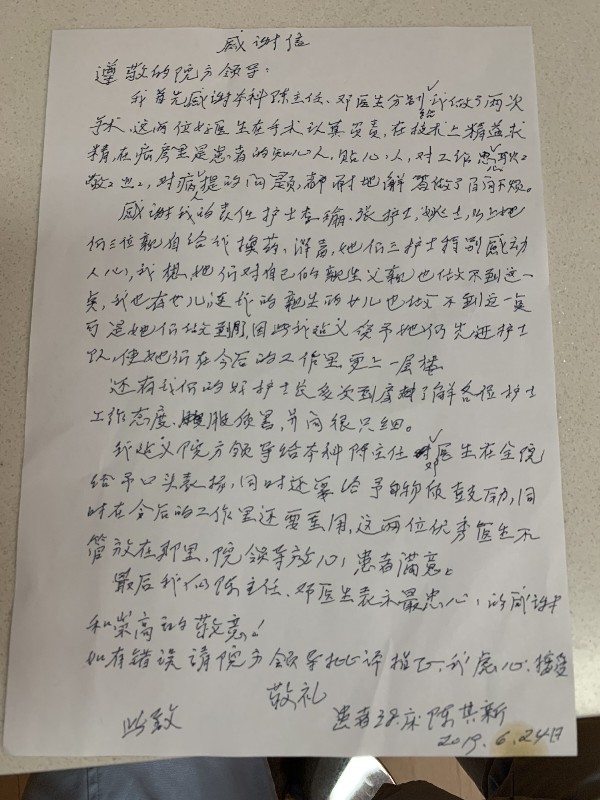 感谢信
遵敬的院方领导：
我首先感谢本科陈主任、邓医生分别给我做了两次
手术，这两位好医生在手术认真负责，在技术上精益求
精，在病房里是患者的知心人，贴心人，对工作忠职
敬业，对病人提的问题，都耐心地解答做了百问不烦。
感谢我的责任护士李瑜、张护士，以上她
们三位亲自给我换药、消毒，她们三护士特别感动
人心，我想她们对自己的親生父親也做不到这一
点，我也有女儿连我的親生的女儿也做不到这一点
可是她们做到了，因此我建义给予她们先进护士
队，使她们在今后的工作里更上一层楼
还有我们的好护士长多次到房间了解各位护士
工作态度，服质量，并问很仔细。
我建义院方领导给本科陈主任邓医生在全院
给予口头表扬，同时还要给予物质鼓励，同
时在今后的工作里还要重用，这两位优秀医生不
管放在那里，院领导放心，患者满意。
最后我们向陈主任、邓医生表示最忠心的感谢
和崇高的敬意！
如有错误请院方领导批评指正，我虚心接受
敬礼
此致
患者 床陈其新
2019.6.24日